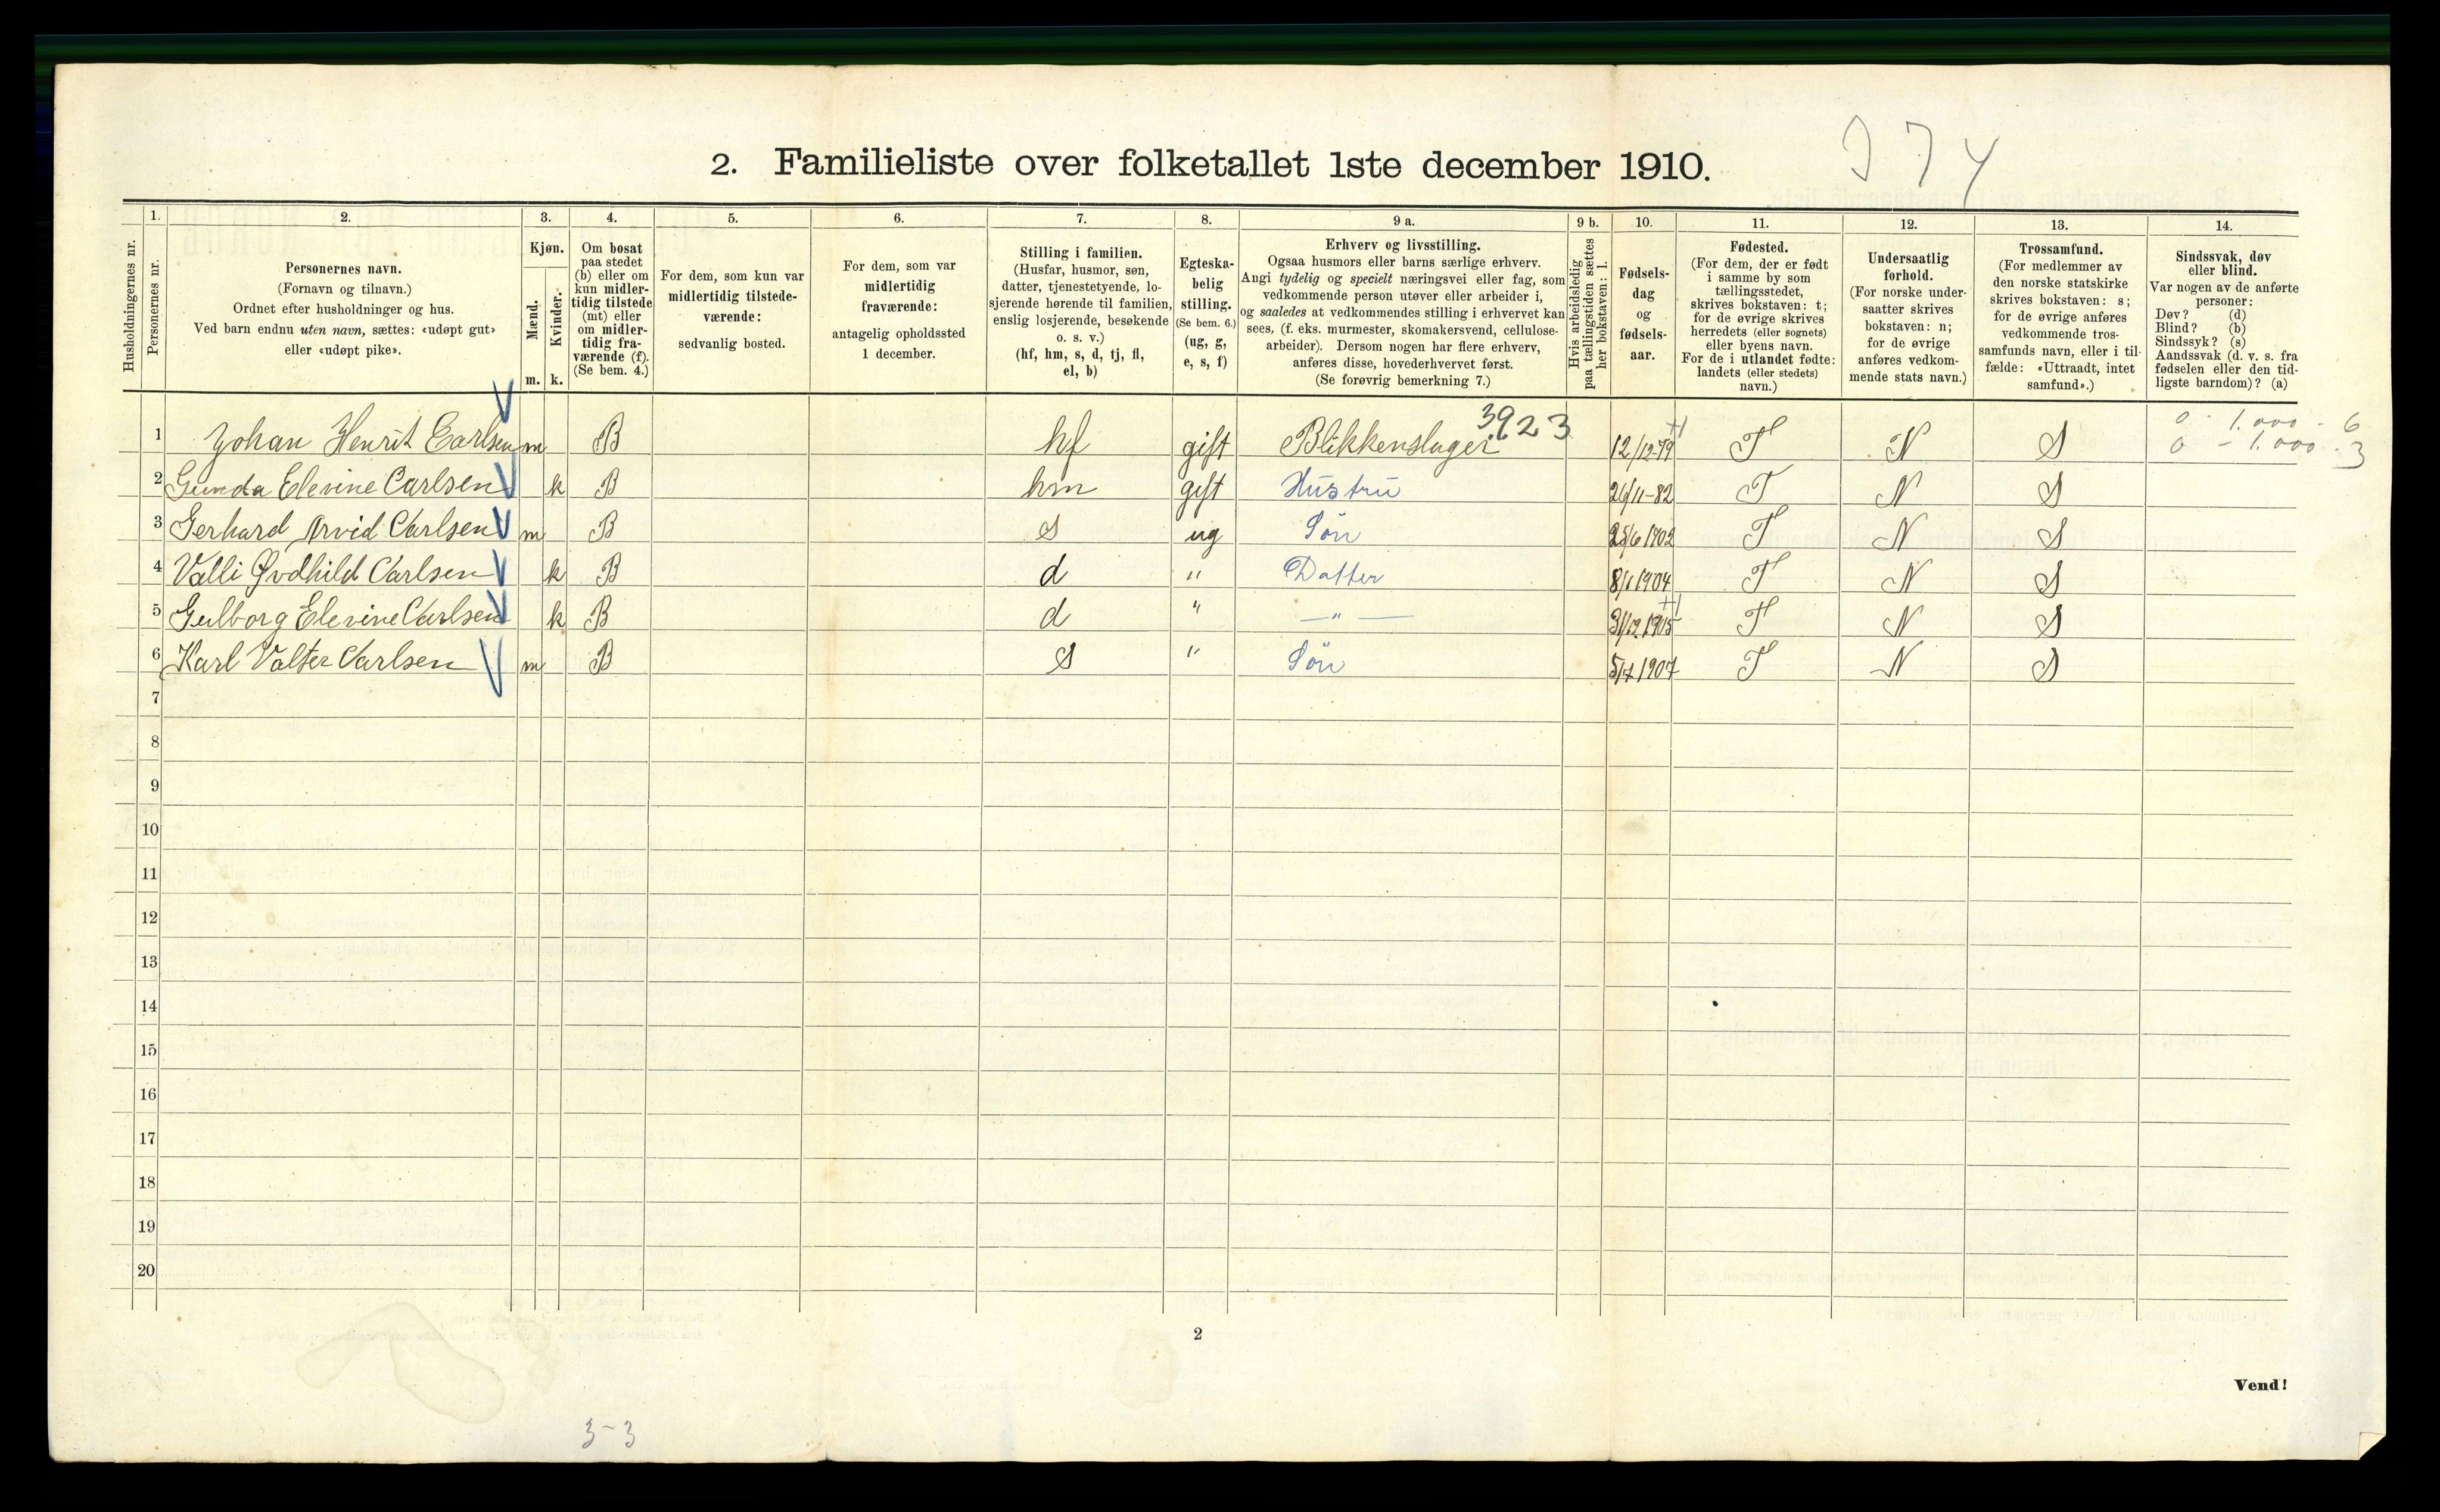 374
2. Familieliste over folketallet 1ste december 1910.
1. 2. 3. 4. 5. 6. 7. 8. 9 a. 9 b. 10. 11. 12. 13. 14.
Husholdningernes nr.
Personernes nr.
Personernes navn.
(Fornavn og tilnavn.)
Ordnet efter husholdninger og hus.
Ved barn endnu uten navn, sættes: «udøpt gut»
eller «udøpt pike».
Kjøn.
Mænd.
Kvinder.
m. k.
Om bosat
paa stedet
(b) eller om
kun midler-
tidig tilstede
(mt) eller
om midler-
tidig fra-
værende (f).
(Se bem. 4.)
For dem, som kun var
midlertidig tilstede-
værende:
sedvanlig bosted.
For dem, som var
midlertidig
fraværende:
antagelig opholdssted
1 december.
Stilling i familien.
(Husfar, husmor, søn,
datter, tjenestetyende, lo-
sjerende hørende til familien,
enslig losjerende, besøkende
o. s. v.)
(hf, hm, s, d, tj, fl,
el, b)
Egteska-
belig
stilling.
(Se bem. 6.)
(ug, g,
e, s, f)
Erhverv og livsstilling.
Ogsaa husmors eller barns særlige erhverv.
Angi tydelig og specielt næringsvei eller fag, som
vedkommende person utøver eller arbeider i,
og saaledes at vedkommendes stilling i erhvervet kan
sees, (f. eks. murmester, skomakersvend, cellulose-
arbeider). Dersom nogen har flere erhverv,
anføres disse, hovederhvervet først.
(Se forøvrig bemerkning 7.)
Hvis arbeidsledig
paa tællingstiden sættes
her bokstaven: l.
Fødsels-
dag
og
fødsels-
aar.
Fødested.
(For dem, der er født
i samme by som
tællingsstedet,
skrives bokstaven: t;
for de øvrige skrives
herredets (eller sognets)
eller byens navn.
For de i utlandet fødte:
landets (eller stedets)
navn.)
Undersaatlig
forhold.
(For norske under-
saatter skrives
bokstaven: n;
for de øvrige
anføres vedkom-
mende stats navn.)
Trossamfund.
(For medlemmer av
den norske statskirke
skrives bokstaven: s;
for de øvrige anføres
vedkommende tros-
samfunds navn, eller i til-
fælde: «Uttraadt, intet
samfund».)
Sindssvak, døv
eller blind.
Var nogen av de anførte
personer:
Døv? (d)
Blind? (b)
Sindssyk? (s)
Aandssvak (d. v. s. fra
fødselen eller den tid-
ligste barndom)? (a)
3923
0 - 1.000 - 6
0 - 1.000 - 3
1 Johan Henrik Carlsen m B hf gift Blikkenslager 12/12-79 T N S
2 Gunda Elevine Carlsen k B hm gift Hustru 26/11-82 T N S
3 Gerhard Arvid Carlsen m B S ug Sön 25/6 1902 T N S
4 Valli Ovdhild Carlsen k B d " Datter 8/1 1904 T N S
5 Gulborg Elevine Carlsen k B d " — " — 31/12 1905 T N S
6 Karl Valter Carlsen m B S " Sön 5/7 1907 T N S
7
8
9
10
11
12
13
14
15
16
17
18
19
20
2
Vend!
3-3